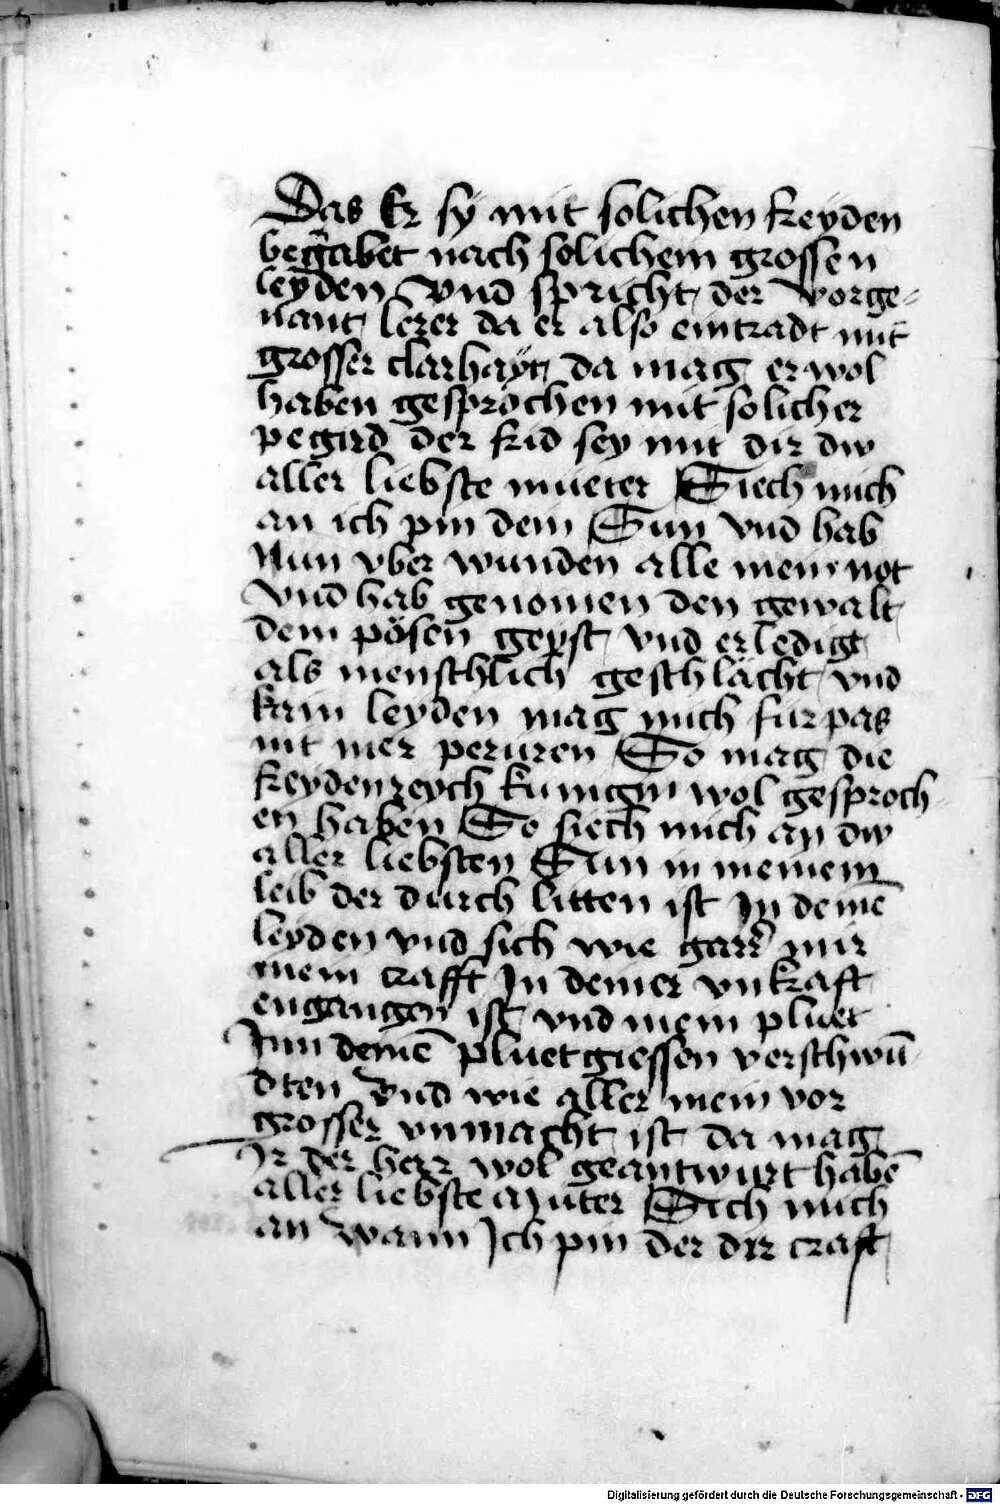 Das Er sy mit solichen freyden
begabet nach solichem grossen
leyden Vnd spricht der vorge-
nant lerer da er also eintradt mit
grosser clarhayt da mag er wol
haben gesprochen mit solicher
pegird der frid sey mit dir dw
aller liebste mueter Siech mich
an ich pin dein Sun vnd hab
Nun vber wunden alle mein not
vnd hab genomen den gewalt
dem pösen geyst vnd erledigt
als menschlich geschlächt vnd
kain leyden mag mich fur pas
nit mer peruren So mag die
freydenreych kunigin wol gesproch
en haben So siech mich an dw
aller liebsten Sun in meinem
leib der durch litten ist In deinē
leyden vnd sich wie garr mir
mein crafft In deiner vnkraft
engangen ist vnd mein pluet
Inn deinē pluetgiessen verschwū
dten Vnd wie aller mein vor
grosser vnmacht ist da mag
Ir der herr wol geantwurt habē
aller liebste Muter Sich mich
an wann Ich pin der dir craft
Digitalisierung gefördert durch die Deutsche Forschungsgemeinschaft - DFG